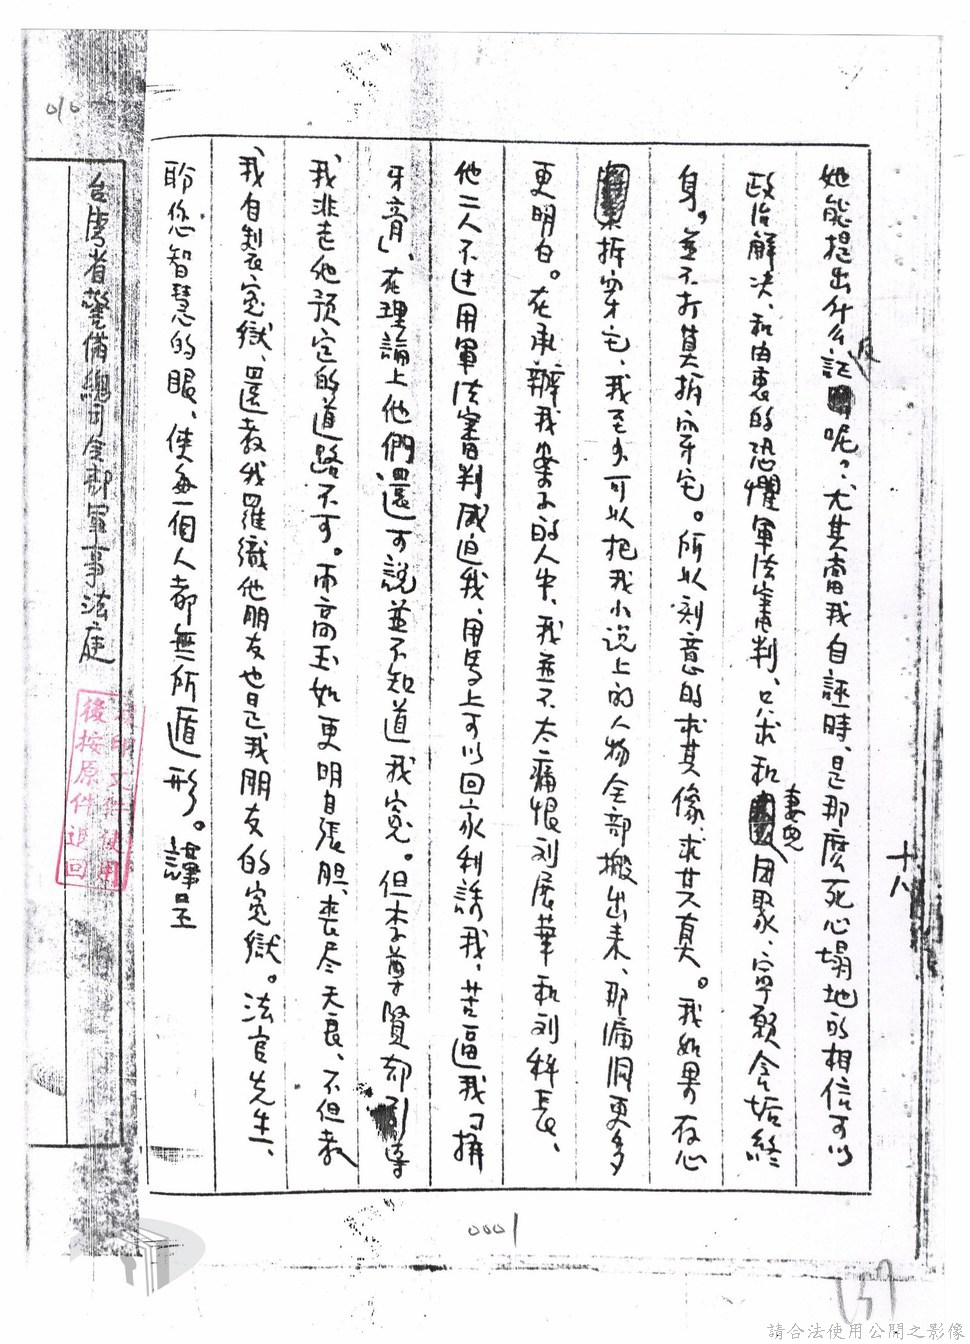 十八
她能提出什么反証呢？尤其當我自誣時、是那麼死心塌地的相信可以
政治解决、和由衷的恐懼軍法審判、只求和妻兒团聚、寧願含垢終
身。並不打算拆穿它。所以刻意的求其像求其真。我如果存心
拆穿它、我至少可以把我小说上的人物全部搬出来、那漏洞更多
更明白。在承辦我案子的人中、我並不太痛恨刘展華和刘科長、
他二人不过用軍法審判威迫我、用馬上可以回家利誘我，苦逼我「擠
牙膏」、在理論上他們還可說並不知道我冤。但李尊賢却引導
我非走他预定的道路不可。而高玉如更明目張胆、丧尽天良、不但教
我自製冤獄、還教我羅織他朋友也是我朋友的冤獄。法官先生、
聆您智慧的眼、使每一個人都無所遁形。謹呈
台湾省警俻總司令部軍事法庭
印文件使用
後按原件退回
010
0001
137
請合法使用公開之影像